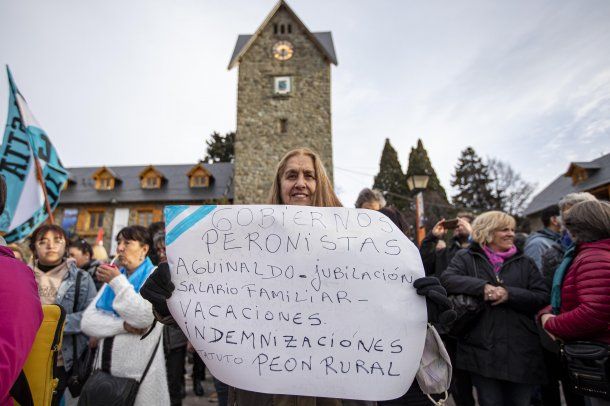 GOBIERNOS
PERONISTAS
AGUINALDO - JUBILACIÓN
SALARIO FAMILIAR -
VACACIONES
INDEMNIZACIONES
PEON RURAL